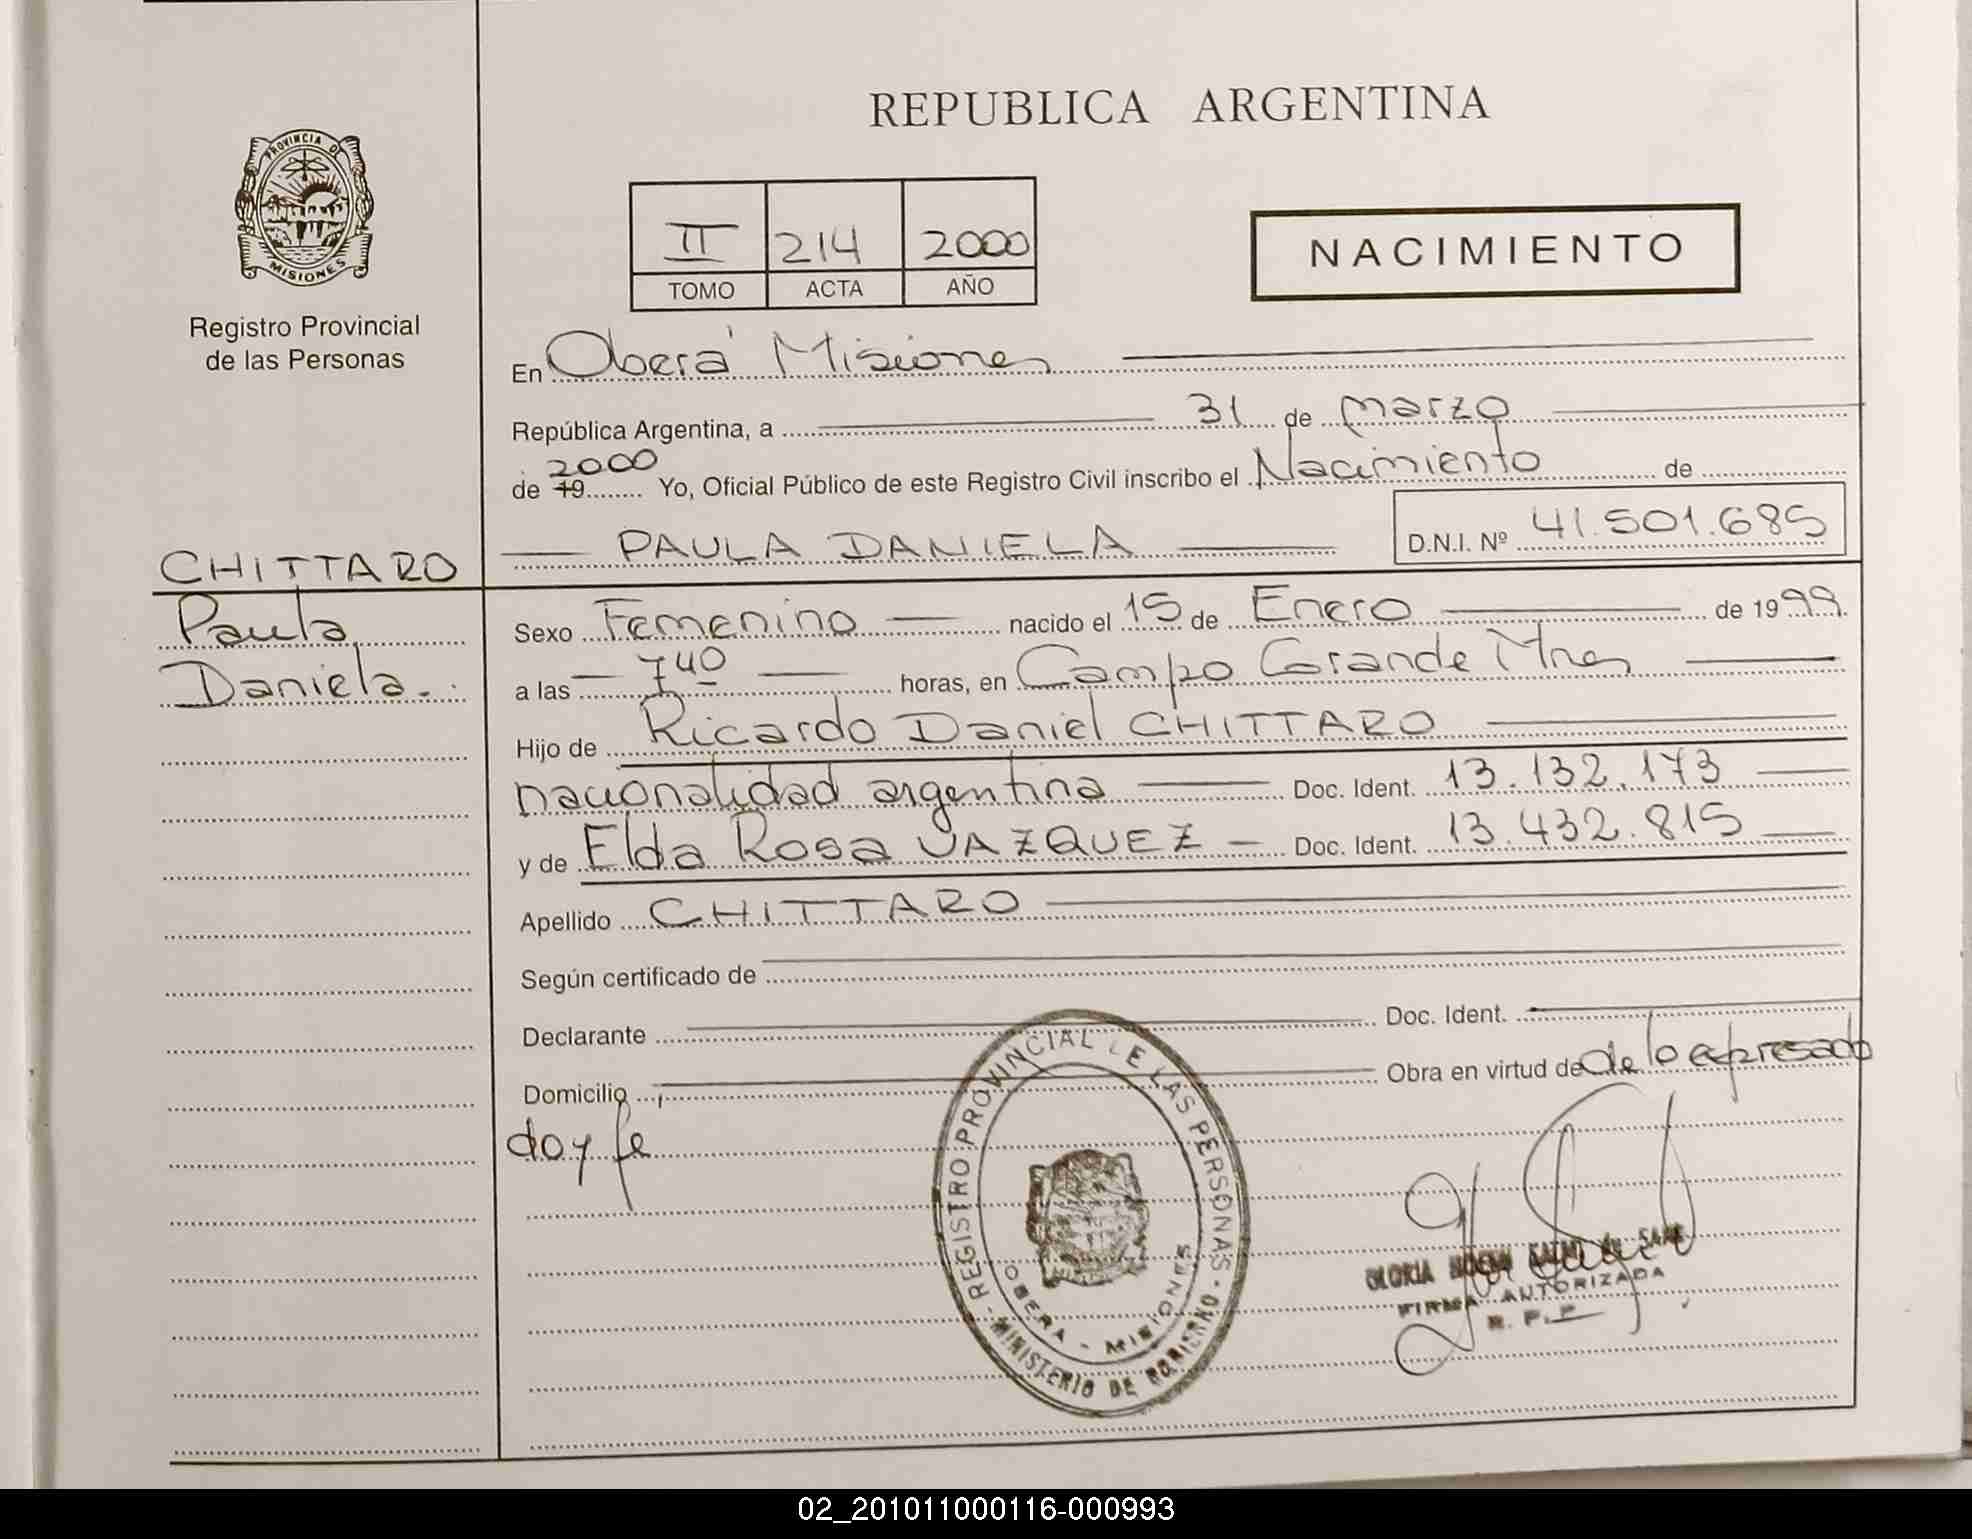 REPUBLICA ARGENTINA
PROVINCIA DE
MISIONES
Registro Provincial
de las Personas
II 214 2000
TOMO ACTA AÑO
NACIMIENTO
En Oberá Misiones
República Argentina, a 31 de marzo
de 2000 19 Yo, Oficial Público de este Registro Civil inscribo el Nacimiento de
PAULA DANIELA D.N.I. Nº 41.501.685
CHITTARO
Paula
Daniela.
Sexo Femenino nacido el 15 de Enero de 1999.
a las 7 40 horas, en Campo Grande Mnes
Hijo de Ricardo Daniel CHITTARO
nacionalidad argentina Doc. Ident. 13.132.173
y de Elda Rosa VAZQUEZ Doc. Ident. 13.432.815
Apellido CHITTARO
Según certificado de
Declarante Doc. Ident.
Domicilio Obra en virtud de de lo expresado
doy fe
REGISTRO PROVINCIAL DE LAS PERSONAS
OBERA - MISIONES
MINISTERIO DE GOBIERNO
GLORIA
FIRMA AUTORIZADA
R. P. P.
02_201011000116-000993